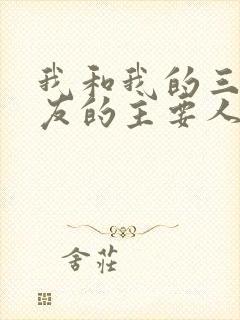 我和我的三
友的主要人
舍莊